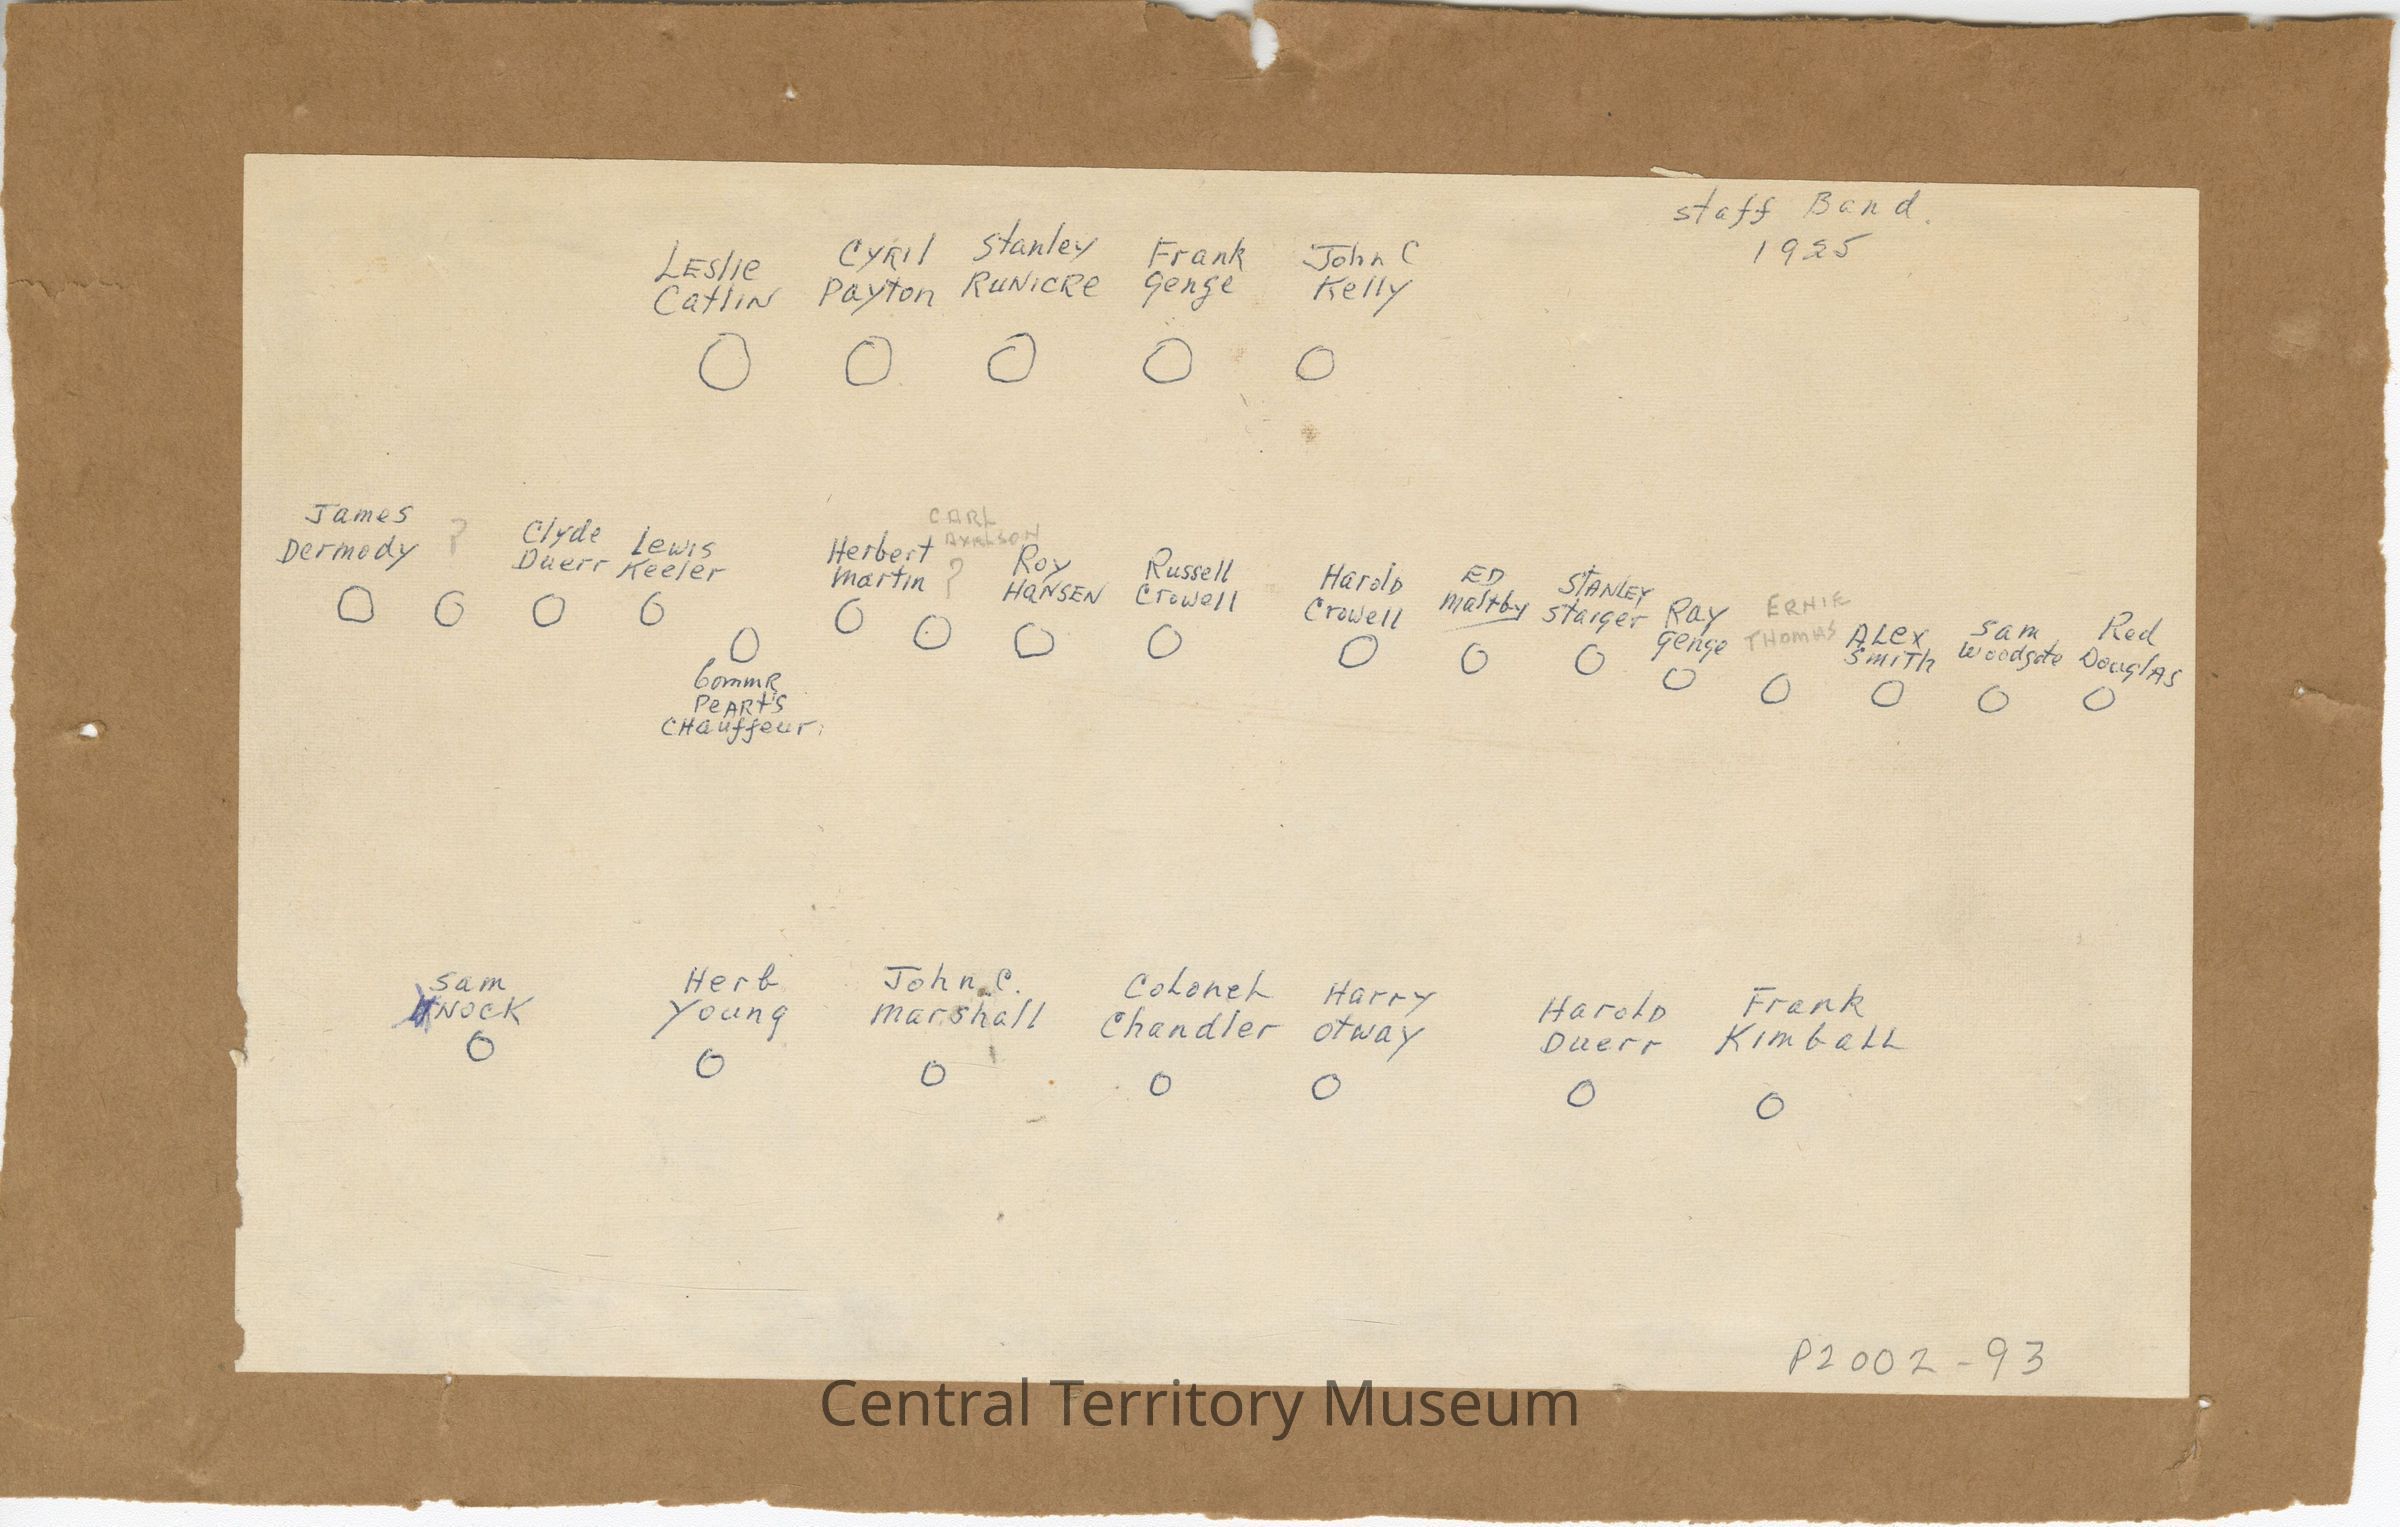 staff Band.
1925
Leslie Catlin
Cyril Payton
Stanley Runicre
Frank Genge
John C Kelly
James Dermody
?
Clyde Duerr
Lewis Keeler
Commr Peart's Chauffeur.
Herbert Martin
CARL AXELSON
?
Roy HANSEN
Russell Crowell
Harold Crowell
ED Maltby
STANLEY Staiger
Ray Genge
ERNIE THOMAS
ALex Smith
Sam Woodgate
Red Douglas
Sam KNOCK
Herb Young
John C. Marshall
Colonel Chandler
Harry Otway
Harold Duerr
Frank Kimball
P2002-93
Central Territory Museum